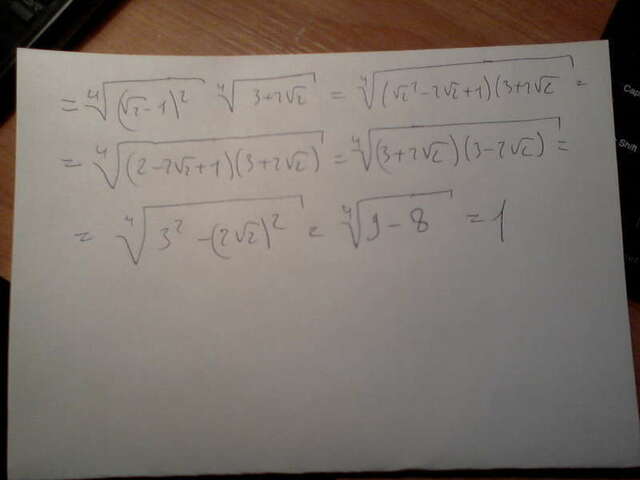 = ∜(√2-1)² ∜3+2√2 = ∜(√2²-2√2+1)(3+2√2 =
= ∜(2-2√2+1)(3+2√2) = ∜(3+2√2)(3-2√2) =
= ∜3²-(2√2)² = ∜9-8 = 1
Cap
Shift